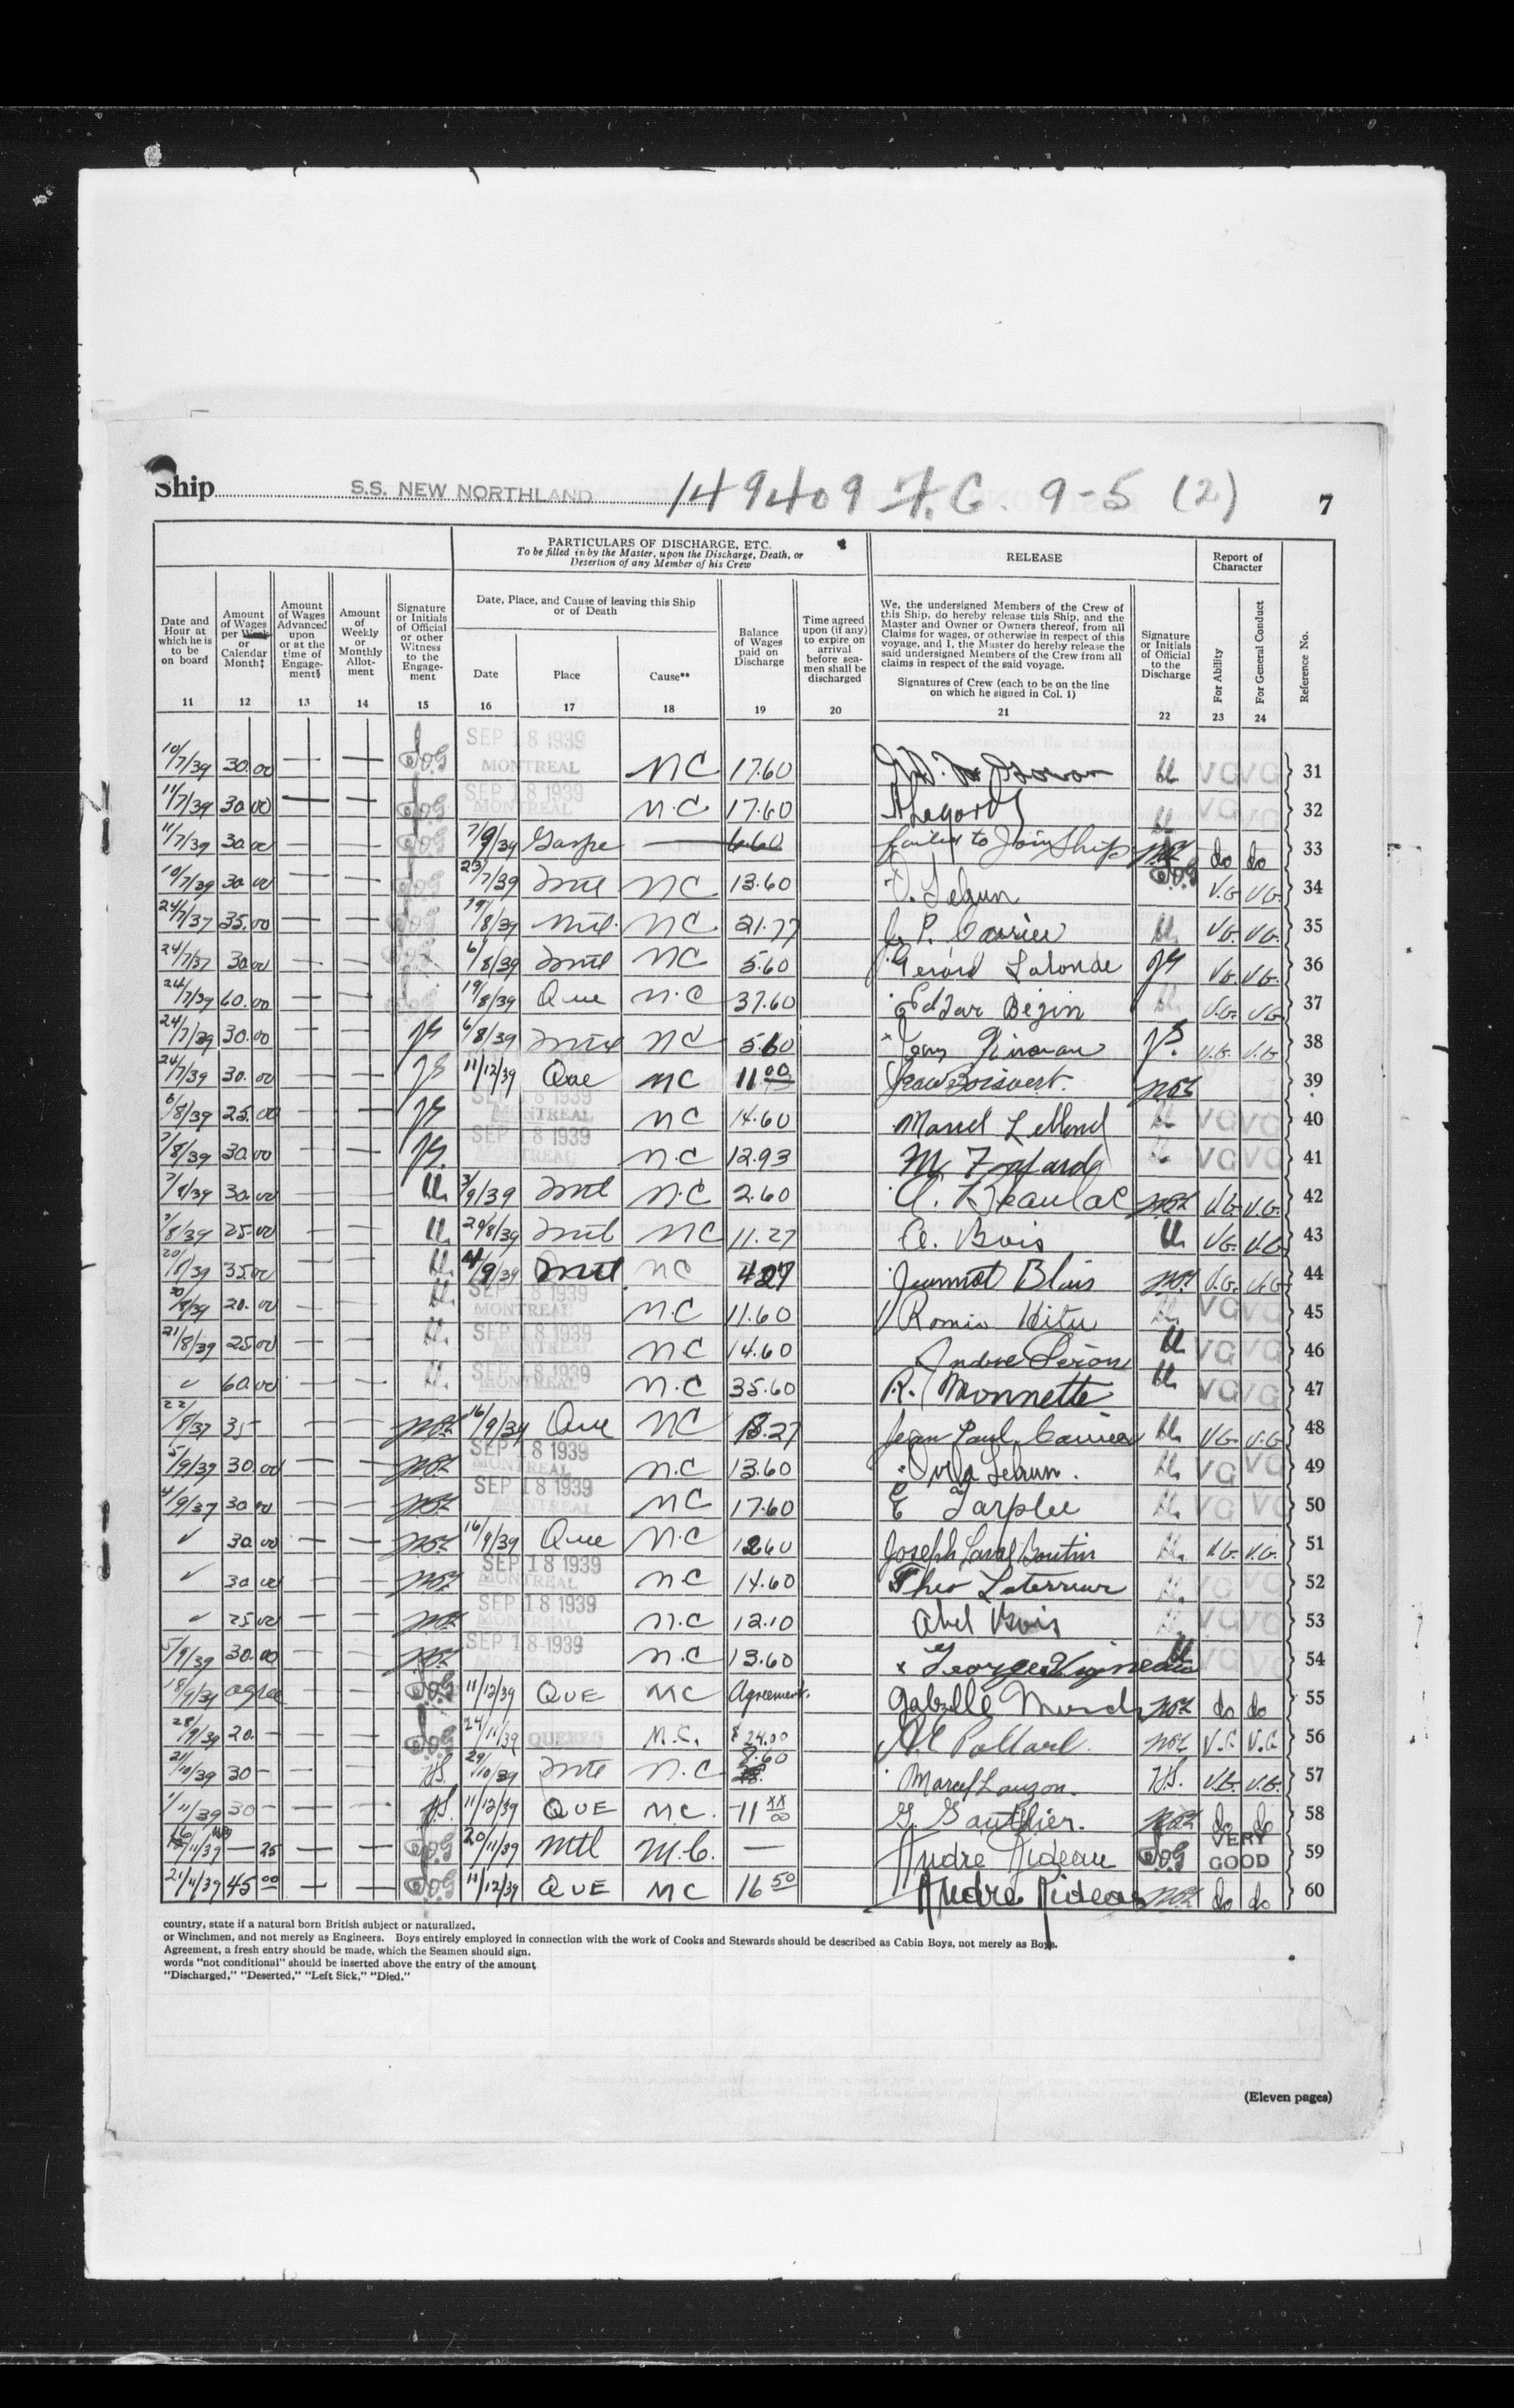 Ship S.S. NEW NORTHLAND 149409 F.C. 9-5 (2) 7
PARTICULARS OF DISCHARGE, ETC.
To be filled in by the Master, upon the Discharge, Death, or
Desertion of any Member of his Crew
RELEASE
Report of
Character
Date and
Hour at
which he is
to be
on board
Amount
of Wages
per Week
or
Calendar
Month‡
Amount
of Wages
Advanced
upon
or at the
time of
Engage-
ment§
Amount
of
Weekly
or
Monthly
Allot-
ment
Signature
or Initials
of Official
or other
Witness
to the
Engage-
ment
Date, Place, and Cause of leaving this Ship
or of Death
Date
Place
Cause**
Balance
of Wages
paid on
Discharge
Time agreed
upon (if any)
to expire on
arrival
before sea-
men shall be
discharged
We, the undersigned Members of the Crew of
this Ship, do hereby release this Ship, and the
Master and Owner or Owners thereof, from all
Claims for wages, or otherwise in respect of this
voyage, and I, the Master do hereby release the
said undersigned Members of the Crew from all
claims in respect of the said voyage.
Signatures of Crew (each to be on the line
on which he signed in Col. 1)
Signature
or Initials
of Official
to the
Discharge
For Ability
For General Conduct
Reference No.
11 12 13 14 15 16 17 18 19 20 21 22 23 24
10/7/39 30.00 — — SEP 18 1939 MONTREAL NC 17.60 VG VG 31
11/7/39 30.00 — — SEP 18 1939 MONTREAL N.C 17.60 VG VG 32
11/7/39 30.00 — — 7/9/39 Gaspe — 6.60 failed to Join Ship do do 33
10/7/39 30.00 — — 23/7/39 Mtl NC 13.60 V. Lebrun V.G V.G. 34
24/7/37 35.00 — — 19/8/39 Mtl. NC 21.77 J. P. Carrier V.G. V.G. 35
24/7/37 30.00 — — 6/8/39 Mtl NC 5.60 Gerard Lalonde V.G. V.G. 36
24/7/39 60.00 — — 19/8/39 Que N.C 37.60 Edgar Begin V.G. V.G 37
24/7/39 30.00 — — 6/8/39 Mtl NC 5.60 V.G. V.G. 38
24/7/39 30.00 — — 11/12/39 Que NC 11 00 Jean Boisvert. 39
6/8/39 25.00 — — SEP 18 1939 MONTREAL NC 14.60 VG VG 40
7/8/39 30.00 — — SEP 18 1939 MONTREAL N.C 12.93 VG VG 41
7/8/39 30.00 — — 3/9/39 Mtl N.C 2.60 A. Beaulac V.G V.G. 42
7/8/39 25.00 — — 20/8/39 Mtl NC 11.27 A. Bois V.G. V.G 43
20/8/39 35.00 — — 4/9/39 Mtl NC 4 27 Jeannot Blais V.G. V.G 44
20/8/39 20.00 — — SEP 18 1939 MONTREAL N.C 11.60 VG VG 45
21/8/39 25.00 — — SEP 18 1939 MONTREAL NC 14.60 VG VG 46
✓ 60.00 — — SEP 18 1939 MONTREAL N.C 35.60 R. Monnette VG VG 47
22/8/37 35 — — — 16/9/39 Que NC 18.27 Jean Paul Carrier V.G. V.G 48
5/9/39 30.00 — — SEP 18 1939 MONTREAL N.C 13.60 Lebrun. VG VG 49
4/9/37 30.00 — — SEP 18 1939 MONTREAL NC 17.60 E Tarplee VG VG 50
✓ 30.00 — — 16/9/39 Que N.C 12.60 Joseph Laval Boutin V.G. V.G. 51
✓ 30.00 — — SEP 18 1939 MONTREAL NC 14.60 Theo VG VG 52
✓ 25.00 — — SEP 18 1939 MONTREAL N.C 12.10 Abel Bois VG VG 53
5/9/39 30.00 — — SEP 18 1939 MONTREAL N.C 13.60 x Georges Vigneault VG VG 54
18/9/39 agree — — 11/12/39 QUE MC Agreement. do do 55
28/9/39 20.— — — 24/11/39 QUEBEC M.C. $24.00 Pollard. V.G V.G 56
21/10/39 30 — — — 29/10/39 Mtl N.C 8.60 Marcel Lauzon. V.G. V.G. 57
1/11/39 30 — — — 11/12/39 QUE MC. 11 XX/00 G. Gauthier. do do 58
16/11/39 — 25 — — 20/11/39 Mtl M.C. — Andre Rideau VERY GOOD 59
21/11/39 45 00 — — 11/12/39 QUE MC 16 50 Andre Rideau do do 60
country, state if a natural born British subject or naturalized.
or Winchmen, and not merely as Engineers. Boys entirely employed in connection with the work of Cooks and Stewards should be described as Cabin Boys, not merely as Boys.
Agreement, a fresh entry should be made, which the Seamen should sign.
words "not conditional" should be inserted above the entry of the amount
"Discharged," "Deserted," "Left Sick," "Died."
(Eleven pages)